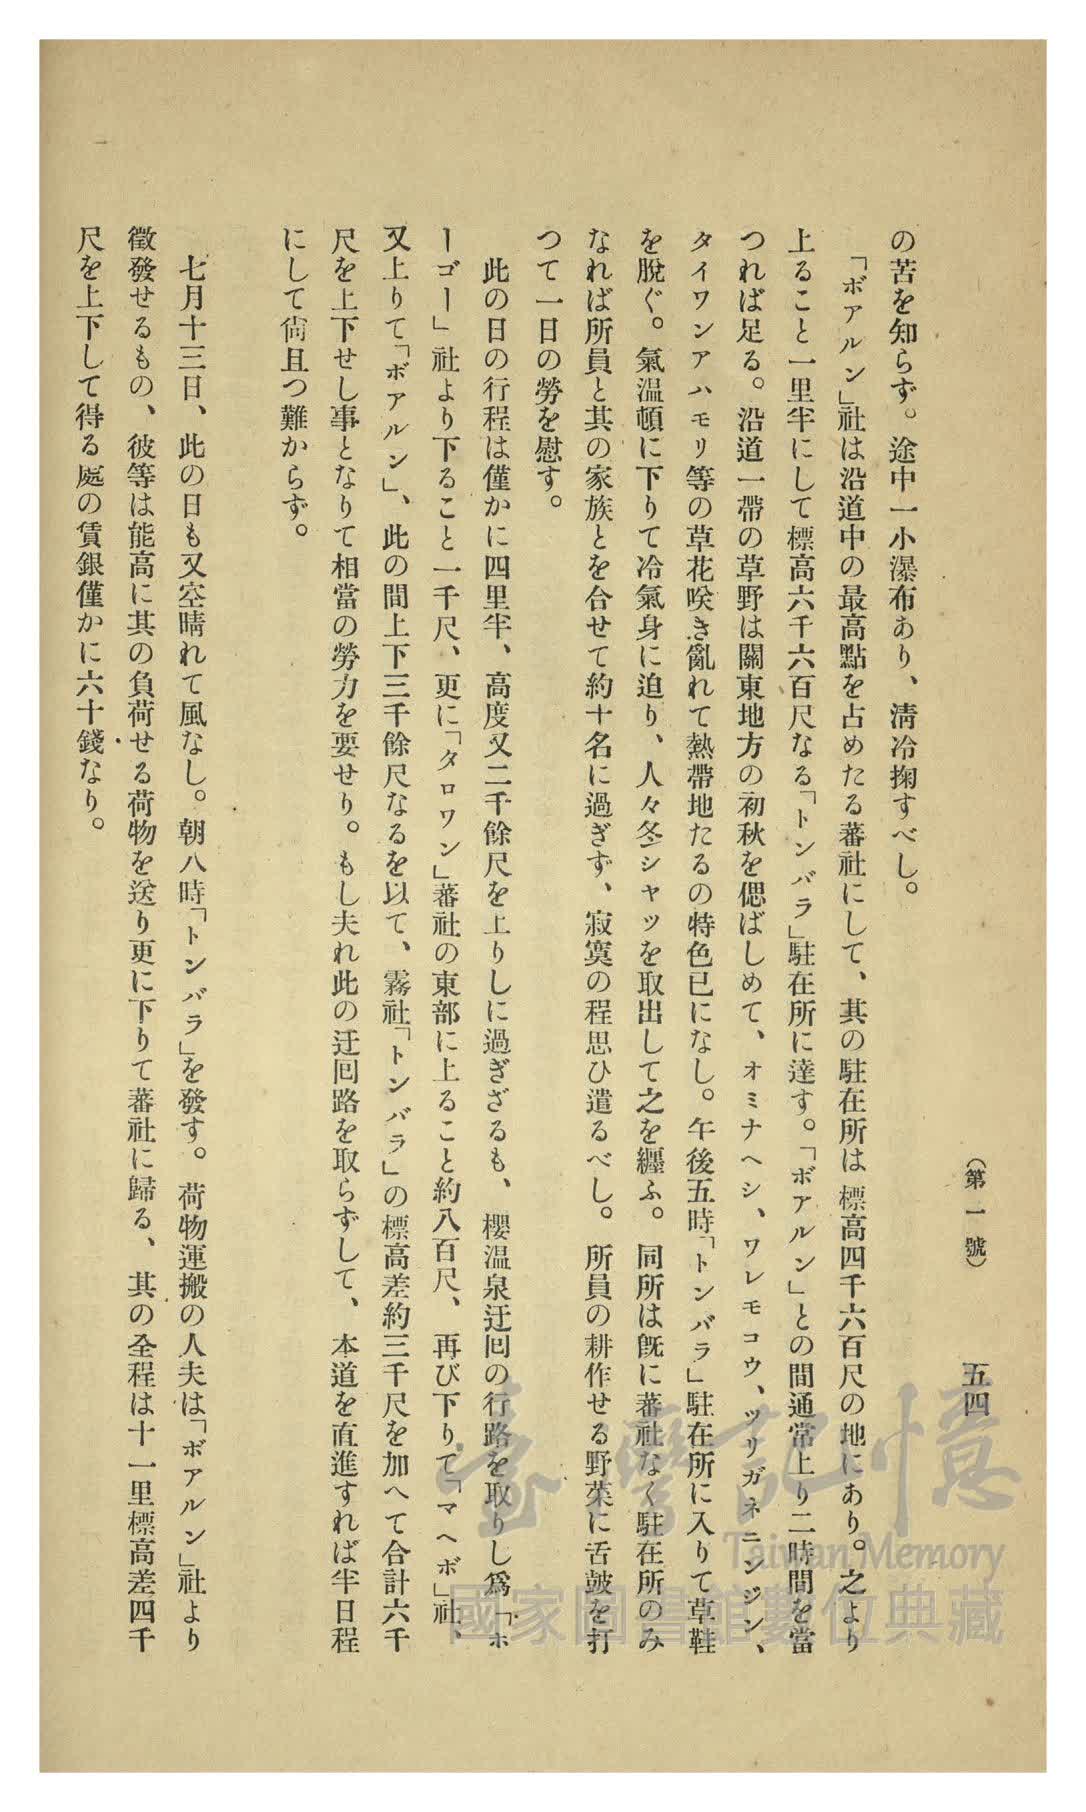 (第一號)
五四
の苦を知らず。途中一小瀑布あり、淸冷掬すべし。
「ボアルン」社は沿道中の最高點を占めたる蕃社にして、其の駐在所は標高四千六百尺の地にあり。之より
上ること一里半にして標高六千六百尺なる「トンバラ」駐在所に達す。「ボアルン」との間通常上り二時間を當
つれば足る。沿道一帶の草野は關東地方の初秋を偲ばしめて、オミナヘシ、ワレモコウ、ツリガネニンジン、
タイワンアハモリ等の草花咲き亂れて熱帶地たるの特色已になし。午後五時「トンバラ」駐在所に入りて草鞋
を脫ぐ。氣溫頓に下りて冷氣身に迫り、人々冬シャツを取出して之を纒ふ。同所は旣に蕃社なく駐在所のみ
なれば所員と其の家族とを合せて約十名に過ぎず、寂寞の程思ひ遣るべし。所員の耕作せる野菜に舌皷を打
つて一日の勞を慰す。
此の日の行程は僅かに四里半、高度又二千餘尺を上りしに過ぎざるも、櫻溫泉迂回の行路を取りし爲「ホ
ーゴー」社より下ること一千尺、更に「タロワン」蕃社の東部に上ること約八百尺、再び下りて「マヘボ」社、
又上りて「ボアルン」、此の間上下三千餘尺なるを以て、霧社「トンバラ」の標高差約三千尺を加へて合計六千
尺を上下せし事となりて相當の勞力を要せり。もし夫れ此の迂回路を取らずして、本道を直進すれば半日程
にして尙且つ難からず。
七月十三日、此の日も又空晴れて風なし。朝八時「トンバラ」を發す。荷物運搬の人夫は「ボアルン」社より
徵發せるもの、彼等は能高に其の負荷せる荷物を送り更に下りて蕃社に歸る、其の全程は十一里標高差四千
尺を上下して得る處の賃銀僅かに六十錢なり。
臺灣記憶
Taiwan Memory
國家圖書館數位典藏